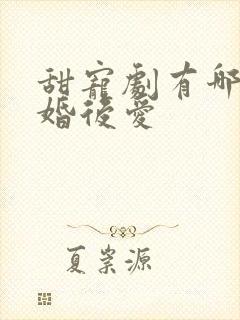 甜寵劇有哪
婚後愛
夏崇源